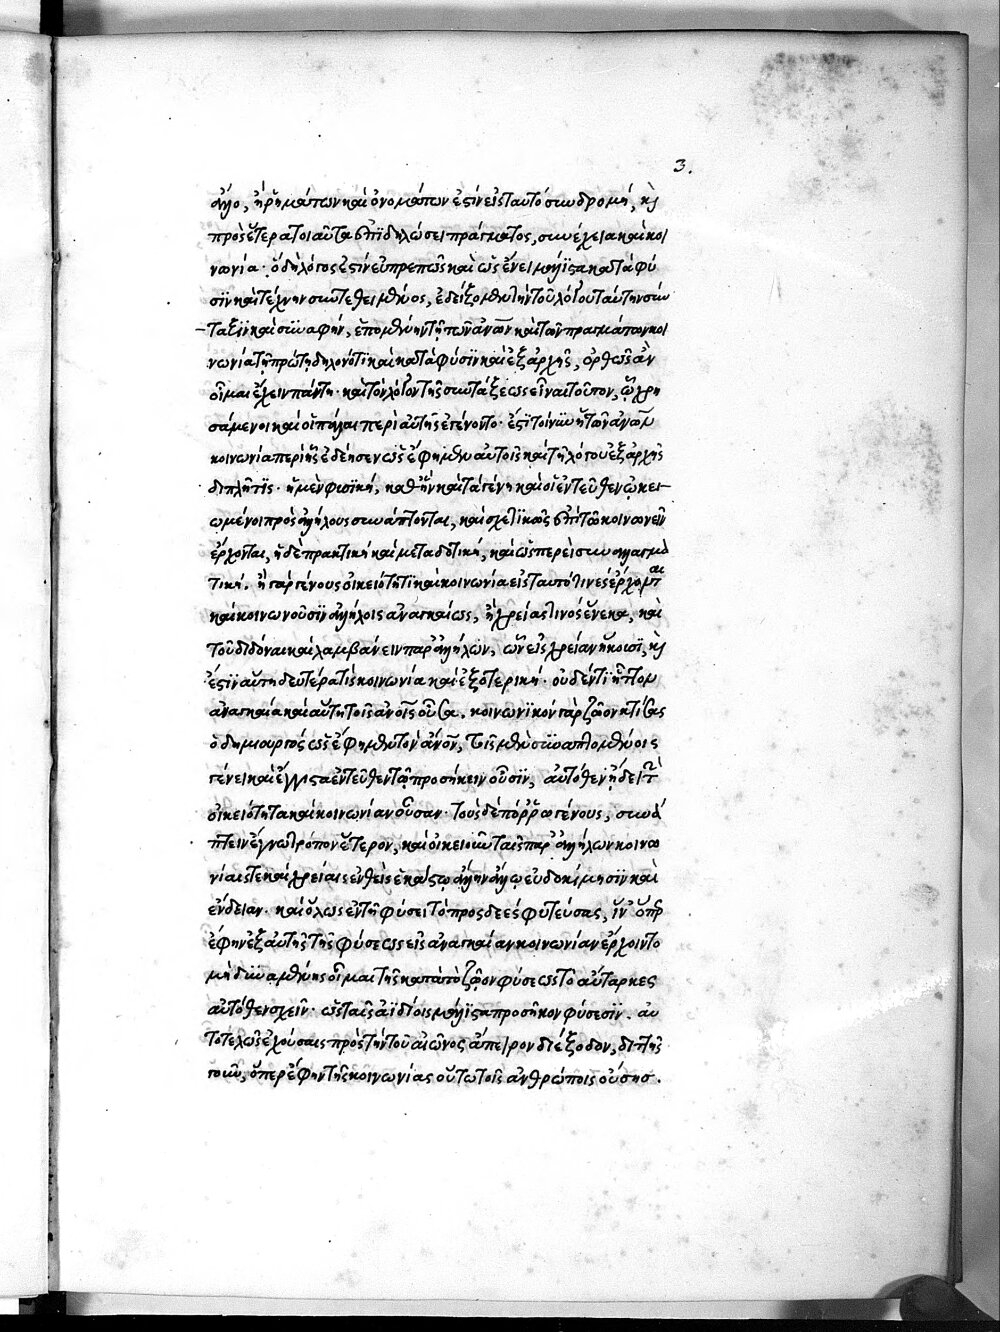 3.
ἄλλο, ἡ ῥημάτων καὶ ὀνομάτων ἐστὶν εἰς ταυτὸ συνδρομή, καὶ
πρὸς ἕτερα τοιαῦτα ἐπὶ δηλώσει πράγματος, συνέχεια καὶ κοι
νωνία· ὁ δὴ λόγος ἐστὶν εὐπρεπῶς καὶ ὡς ἔνει μάλιστα κατὰ φύ
σιν καὶ τέχνην συντεθειμένος, ἐδείξομεν τὴν τοῦ λόγου ταύτην σύν
ταξιν καὶ συναφήν, ἑπομένην τῇ τῶν ἀνων καὶ τῶν πραγμάτων κοι
νωνία τῇ πρώτῃ δηλονότι καὶ κατὰ φύσιν καὶ ἐξ ἀρχῆς, ὀρθῶς ἂν
οἶμαι ἔχειν πάντῃ· καὶ τὸν λόγον τῆς συντάξεως εἶναι τοῦτον, ᾧ χρη
σάμενοι καὶ οἱ πάλαι περὶ αὐτῆς ἐγένοντο· ἔστι τοίνυν ἡ τῶν ἀνων
κοινωνία περὶ ἧς ἐδέησεν ὡς ἔφημεν αὐτοῖς καὶ τῇ λόγου ἐξ ἀρχῆς
διπλῆ τις· ἡ μὲν φυσικὴ, καθ' ἣν κατὰ γένη καὶ οἱ ἐντεῦθεν ᾠκει
ωμένοι πρὸς ἀλλήλους συνάπτονται, καὶ σχετικῶς ἐπὶ τὸ κοινωνεῖν
ἔρχονται, ἡ δὲ πρακτικὴ καὶ μεταδοτική, καὶ ὥσπερεὶ συναλλαγμα
τική. ἢ γὰρ γένους οἰκειότητι καὶ κοινωνία εἰς ταυτό τινες ἔρχονται
καὶ κοινωνοῦσιν ἀλλήλοις ἀναγκαίως, ἢ χρείας τινὸς ἕνεκα, καὶ
τοῦ διδόναι καὶ λαμβάνειν παρ' ἀλλήλων, ὧν εἰς χρείαν ἥκουσι, καὶ
ἔστιν αὕτη δευτέρα τις κοινωνία καὶ ἐξωτερική· οὐδέν τι ἧττον
ἀναγκαία καὶ αὕτη τοῖς ἀνοις οὖσα. κοινωνικὸν γὰρ ζῷον κτίσας
ὁ δημιουργὸς ὡς ἔφημεν τὸν ἄνον, τοῖς μὲν συναπτομένοις
γένει καὶ ἔγγιστα ἐντεῦθεν τῷ προσήκειν οὖσιν, αὐτόθεν ᾔδει τὴν
οἰκειότητα καὶ κοινωνίαν οὖσαν· τοὺς δὲ πόρρω γένους, συνά
πτειν ἔγνω τρόπον ἕτερον, καὶ οἰκειοῦν ταῖς παρ' ἀλλήλων κοινω
νίαις τε καὶ χρείαις ἐνθεὶς ἑκάστῳ ἄλλην ἄλλῳ εὐδοκίμησιν καὶ
ἔνδειαν· καὶ ὅλως ἐν τῇ φύσει τὸ προσδεὲς φυτεύσας, ἵν' ὅπερ
ἔφην ἐξ αὐτῆς τῆς φύσεως εἰς ἀναγκαίαν κοινωνίαν ἔρχοιντο
μὴ δυναμένης οἶμαι τῆς κατὰ τὸ ζῷον φύσεως τὸ αὔταρκες
αὐτόθεν σχεῖν· ὡς ταῖς ἀϊδίοις μάλιστα προσῆκον φύσεσιν. αὐ
τοτελῶς ἐχούσαις πρὸς τὴν τοῦ αἰῶνος ἄπειρον διέξοδον, διττῆς
τοίνυν, ὅπερ ἔφην τῆς κοινωνίας οὕτω τοῖς ἀνθρώποις οὔσης.